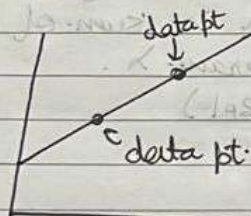 data pt
data pt.